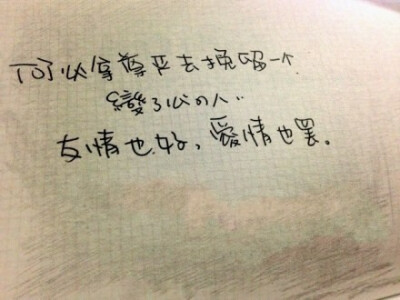 何必拿尊严去挽留一个
變了心の人..
友情也好,愛情也罢。